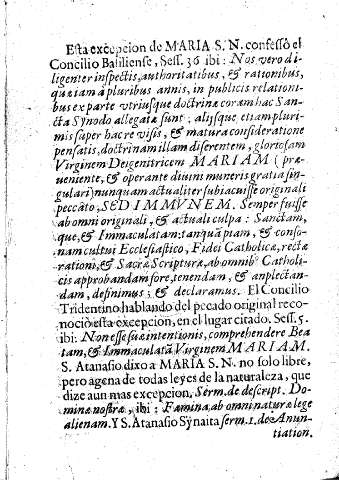 Esta excepcion de MARIA S. N. confessò el
Concilio Basiliense, Sess. 36 ibi: Nos vero di-
ligenter inspectis, authoritatibus, & rationibus,
quæ iam à pluribus annis, in publicis relationi-
bus ex parte vtriusque doctrinæ coram hac San-
cta Synodo allegatæ sunt; alijsque etiam pluri-
mis super hac re visis, & matura consideratione
pensatis, doctrinam illam diserentem, gloriosam
Virginem Deigenitricem MARIAM (præ-
ueniente, & operante diuini muneris gratia sin-
gulari) nunquam actualiter subiacuisse originali
peccato, SED IMMVNEM. Semper fuisse
ab omni originali, & actuali culpa: Sanctam,
que, & Immaculatam: tanquã piam, & conso-
nam cultui Ecclesiastico, Fidei Catholicæ, rectæ
rationi, & Sacræ Scripturæ, ab omnib° Catholi-
cis approbandam fore, tenendam, & anplectan-
dam, definimus; & declaramus. El Concilio
Tridentino hablando del pecado original reco-
nociò esta excepcion, en el lugar citado. Sess. 5.
ibi: Non esse suæ intentionis, comprehendere Bea
tam, & Immaculatã Virginem MARIAM.
S. Atanasio dixo a MARIA S. N. no solo libre,
pero agena de todas leyes de la naturaleza, que
dize aun mas excepcion. Serm. de descript. Do-
minæ nostræ, ibi: Fœmina, ab omni naturæ lege
alienam. Y S. Atanasio Synaita serm. 1. de Anun-
tiation.